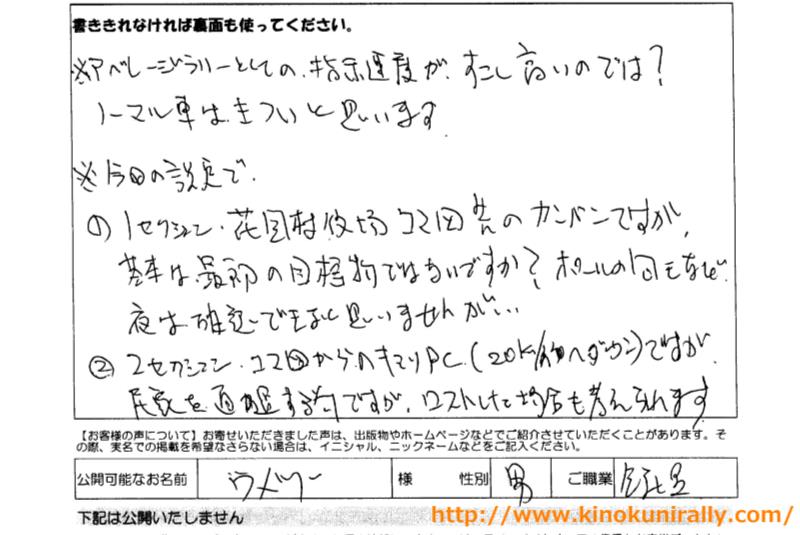 書ききれなければ裏面も使ってください。
※アベレージラリーとしての、指示速度が、すこし高いのでは？
ノーマル車はきついと思います
※今回の設定で、
① 1セクション・花園村役場 コマ図 のカンバンですが、
基本は最初の目標物ではないですか？ポールの
夜は確認できないと思いませんが、、
② 2セクション・コマ図からのキマリPC.(20K/ へダウン)ですが
民家を通過する ですが、ロストした場合も考えられます
【お客様の声について】お寄せいただきました声は、出版物やホームページなどでご紹介させていただくことがあります。そ
の際、実名での掲載を希望なさらない場合は、イニシャル、ニックネームなどをご記入ください。
公開可能なお名前 様 性別 男 ご職業 会社員
下記は公開いたしません http://www.kinokunirally.com/